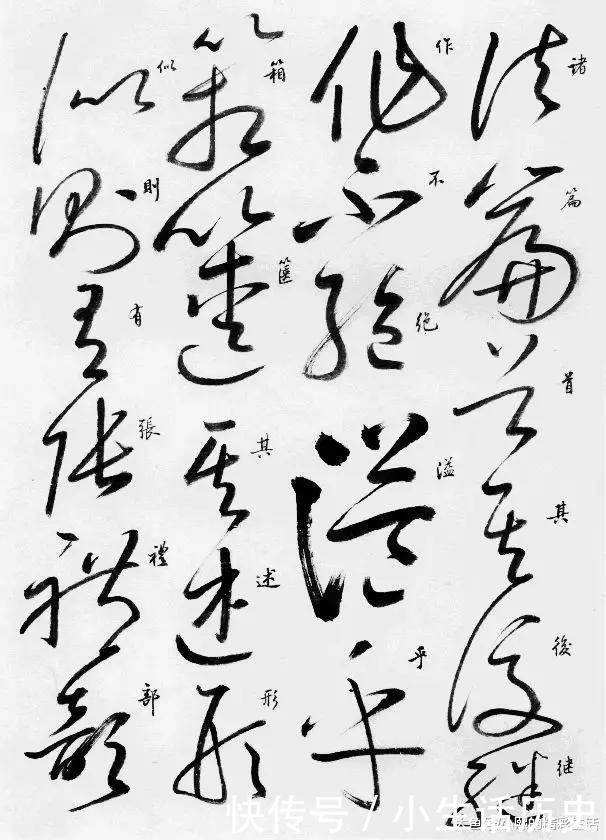 諸篇首其後继
作不绝溢乎
箱篋其述形
似則有張禮部
快传号 / 小生活历史